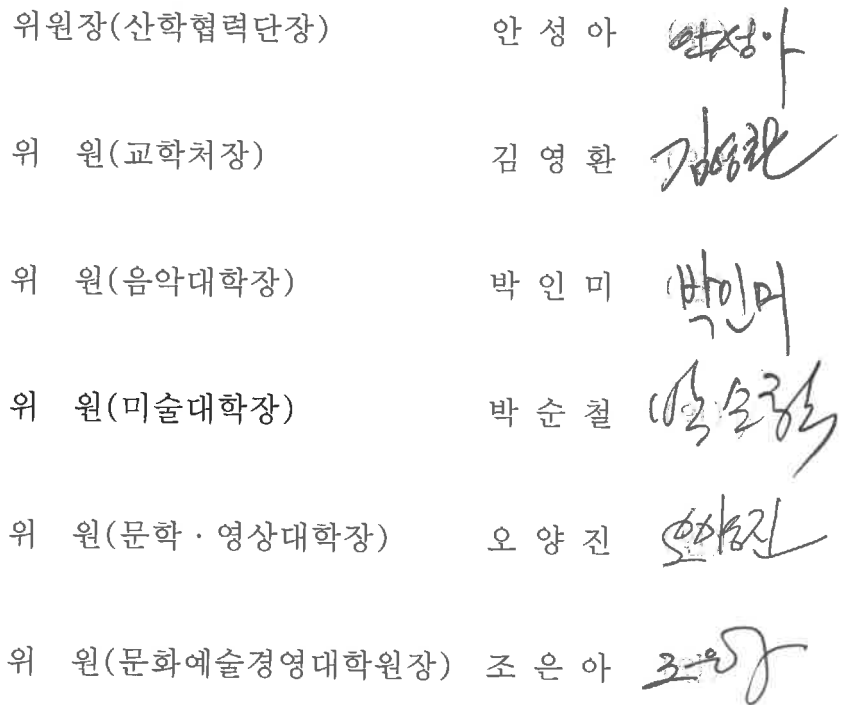 위원장(산학협력단장) 안 성 아 안성아
위 원(교학처장) 김 영 환 김영환
위 원(음악대학장) 박 인 미 박인미
위 원(미술대학장) 박 순 철 박순철
위 원(문학 · 영상대학장) 오 양 진 오양진
위 원(문화예술경영대학원장) 조 은 아 조은아